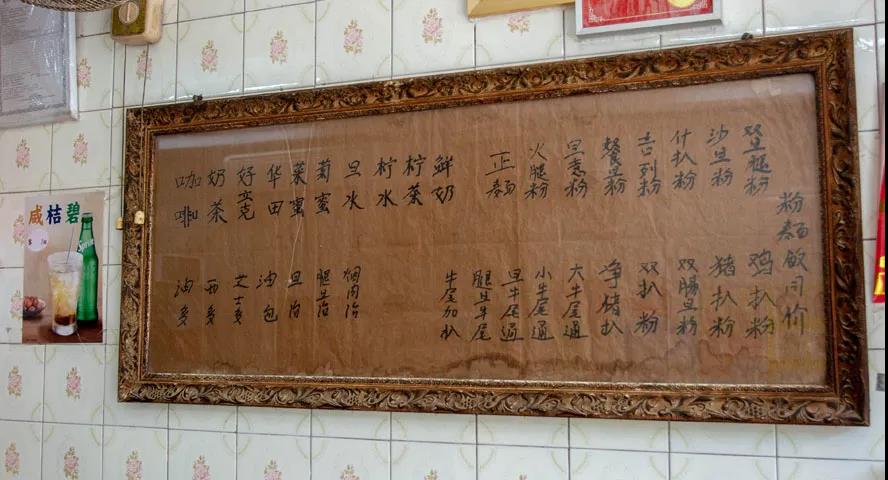 粉麵飯同价
双旦腿粉
沙旦粉
什扒粉
吉列粉
餐旦粉
旦意粉
火腿粉
正麵
鲜奶
柠茶
柠水
旦水
菊蜜
菜蜜
华田
好立克
奶茶
咖啡
鸡扒粉
猪扒粉
双腸旦粉
双扒粉
净猪扒
大牛尾通
小牛尾通
旦牛尾通
腿旦牛尾
牛尾加扒
烟肉治
腿旦治
旦治
油包
芝士多
西多
油多
咸桔碧
Sprite